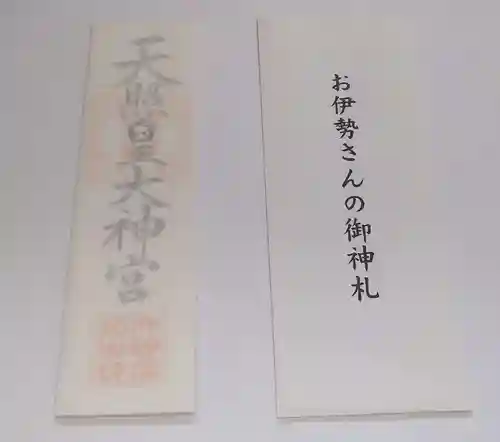 天照皇大神宮
お伊勢さんの御神札